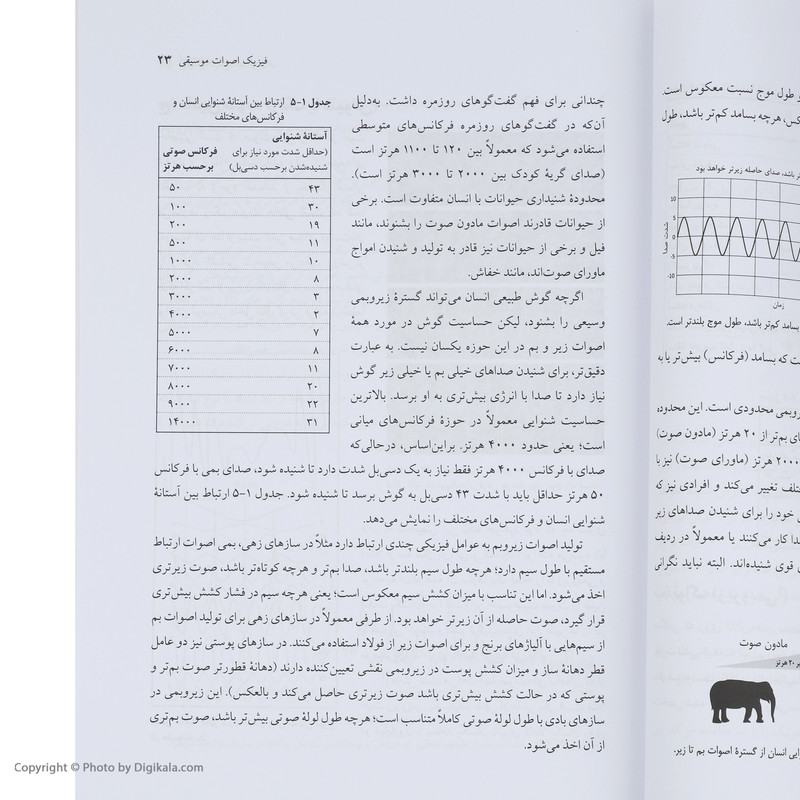 فیزیک اصوات موسیقی ۲۳
چندانی برای فهم گفت‌گوهای روزمره داشت. به‌دلیل
آن‌که در گفت‌گوهای روزمره فرکانس‌های متوسطی
استفاده می‌شود که معمولاً بین ۱۲۰ تا ۱۱۰۰ هرتز است
(صدای گریهٔ کودک بین ۲۰۰۰ تا ۳۰۰۰ هرتز است).
محدودهٔ شنیداری حیوانات با انسان متفاوت است. برخی
از حیوانات قادرند اصوات مادون صوت را بشنوند، مانند
فیل و برخی از حیوانات نیز قادر به تولید و شنیدن امواج
ماورای صوت‌اند، مانند خفاش.
اگرچه گوش طبیعی انسان می‌تواند گسترهٔ زیروبمی
وسیعی را بشنود، لیکن حساسیت گوش در مورد همهٔ
اصوات زیر و بم در این حوزه یکسان نیست. به عبارت
دقیق‌تر، برای شنیدن صداهای خیلی بم یا خیلی زیر گوش
نیاز دارد تا صدا با انرژی بیش‌تری به او برسد. بالاترین
حساسیت شنوایی معمولاً در حوزهٔ فرکانس‌های میانی
است؛ یعنی حدود ۴۰۰۰ هرتز. براین‌اساس، درحالی‌که
صدای با فرکانس ۴۰۰۰ هرتز فقط نیاز به یک دسی‌بل شدت دارد تا شنیده شود، صدای بمی با فرکانس
۵۰ هرتز حداقل باید با شدت ۴۳ دسی‌بل به گوش برسد تا شنیده شود. جدول ۱-۵ ارتباط بین آستانهٔ
شنوایی انسان و فرکانس‌های مختلف را نمایش می‌دهد.
تولید اصوات زیروبم به عوامل فیزیکی چندی ارتباط دارد مثلاً در سازهای زهی، بمی اصوات ارتباط
مستقیم با طول سیم دارد؛ هرچه طول سیم بلندتر باشد، صدا بم‌تر و هرچه کوتاه‌تر باشد، صوت زیرتری
اخذ می‌شود. اما این تناسب با میزان کشش سیم معکوس است؛ یعنی هرچه سیم در فشار کشش بیش‌تری
قرار گیرد، صوت حاصله از آن زیرتر خواهد بود. از طرفی معمولاً در سازهای زهی برای تولید اصوات بم
از سیم‌هایی با آلیاژهای برنج و برای اصوات زیر از فولاد استفاده می‌کنند. در سازهای پوستی نیز دو عامل
قطر دهانهٔ ساز و میزان کشش پوست در زیروبمی نقشی تعیین‌کننده دارند (دهانهٔ قطورتر صوت بم‌تر و
پوستی که در حالت کشش بیش‌تری باشد صوت زیرتری حاصل می‌کند و بالعکس). این زیروبمی در
سازهای بادی با طول لولهٔ صوتی کاملاً متناسب است؛ هرچه طول لولهٔ صوتی بیش‌تر باشد، صوت بم‌تری
از آن اخذ می‌شود.
جدول ۱-۵ ارتباط بین آستانهٔ شنوایی انسان و
فرکانس‌های مختلف
آستانهٔ شنوایی
(حداقل شدت مورد نیاز برای
شنیده‌شدن برحسب دسی‌بل)
فرکانس صوتی
برحسب هرتز
۴۳ ۵۰
۳۰ ۱۰۰
۱۹ ۲۰۰
۱۱ ۵۰۰
۱۰ ۱۰۰۰
۸ ۲۰۰۰
۳ ۳۰۰۰
۲ ۴۰۰۰
۷ ۵۰۰۰
۸ ۶۰۰۰
۱۱ ۷۰۰۰
۲۰ ۸۰۰۰
۲۲ ۹۰۰۰
۳۱ ۱۴۰۰۰
و طول موج نسبت معکوس است.
هرچه بسامد کم‌تر باشد، طول
باشد، صدای حاصله زیرتر خواهد بود
10
5
0
-5
-10
شدت صدا
زمان
بسامد کم‌تر باشد، طول موج بلندتر است.
که بسامد (فرکانس) بیش‌تر یا به
محدودی است. این محدوده
بم‌تر از ۲۰ هرتز (مادون صوت)
هرتز (ماورای صوت) نیز با
تغییر می‌کند و افرادی نیز که
خود را برای شنیدن صداهای زیر
کار می‌کنند یا معمولاً در ردیف
قوی شنیده‌اند. البته نباید نگرانی
مادون صوت
۲۰ هرتز
انسان از گسترهٔ اصوات بم تا زیر.
Copyright © Photo by Digikala.com